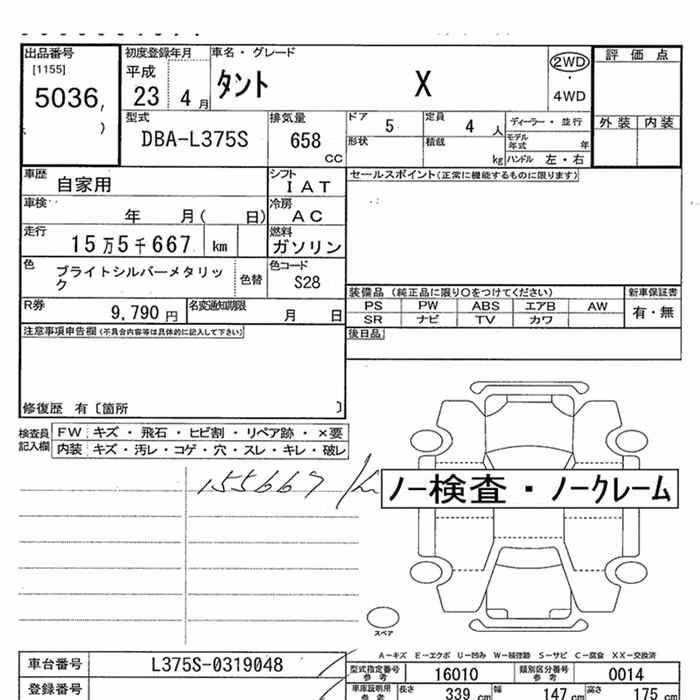 出品番号
[1155]
5036,
)
初度登録年月
平成
23 4月
車名・グレード
タント X
2WD
・
4WD
評価点
外装 内装
型式
DBA-L375S
排気量
658
CC
ドア 5
定員 4 人
ディーラー・並行
形状
積載 kg
モデル年式 年
ハンドル 左・右
車歴
自家用
シフト
IAT
セールスポイント(正常に機能するものに限ります)
車検
年 月( 日)
冷房
AC
走行
15万5千667 km
燃料
ガソリン
色
ブライトシルバーメタリック
色替
色コード
S28
装備品 (純正品に限り○をつけてください)
新車保証書
PS PW ABS エアB AW
有・無
SR ナビ TV カワ
R券
9,790 円
名変通知期限
月 日
後日品
注意事項申告欄(不具合内容等は具体的に記入して下さい)
修復歴 有〔箇所 〕
検査員記入欄
FW キズ・飛石・ヒビ割・リペア跡・×要
内装 キズ・汚レ・コゲ・穴・スレ・キレ・破レ
155667
ノー検査・ノークレーム
スペア
A-キズ E-エクボ U-凹み W-補修跡 S-サビ C-腐食 XX-交換済
車台番号
L375S-0319048
型式指定番号 参考
16010
類別区分番号 参考
0014
登録番号
車庫証明用 参考
長さ 339 cm
幅 147 cm
高さ 175 cm